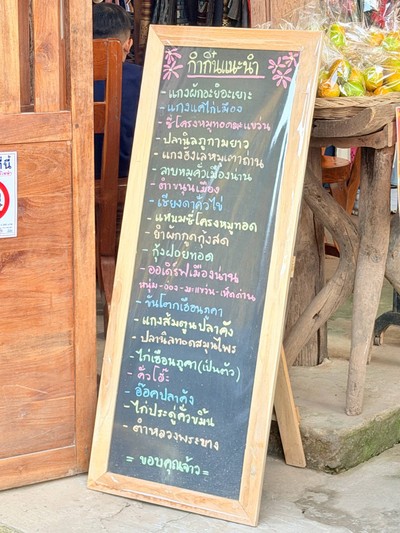 กำกิ๋นแนะนำ
- แกงผักอะยิอะเยาะ
- แกงแคไก่เมือง
- ซี่โครงหมูทอดมะแขว่น
- ปลานิลภูกามยาว
- แกงฮังเลหมูเตาถ่าน
- ลาบหมูคั่วเมืองน่าน
- ตำขนุนเมือง
- เชียงดาคั่วไข่
- แหนมซี่โครงหมูทอด
- ยำผักกูดกุ้งสด
- กุ้งฝอยทอด
- ออเดิร์ฟเมืองน่าน
หนุ่ม-อ่อง-มะแขว่น-เห็ดถ่าน
- ขันโตกเฮือนภูคา
- แกงส้มตูนปลาคัง
- ปลานิลทอดสมุนไพร
- ไก่เฮือนภูคา(เป็นตัว)
- คั่วโฮ๊ะ
- อ๊อคปลาคัง
- ไก่ประดู่คั่วขมิ้น
- ตำหลวงพระบาง
= ขอบคุณเจ้า =